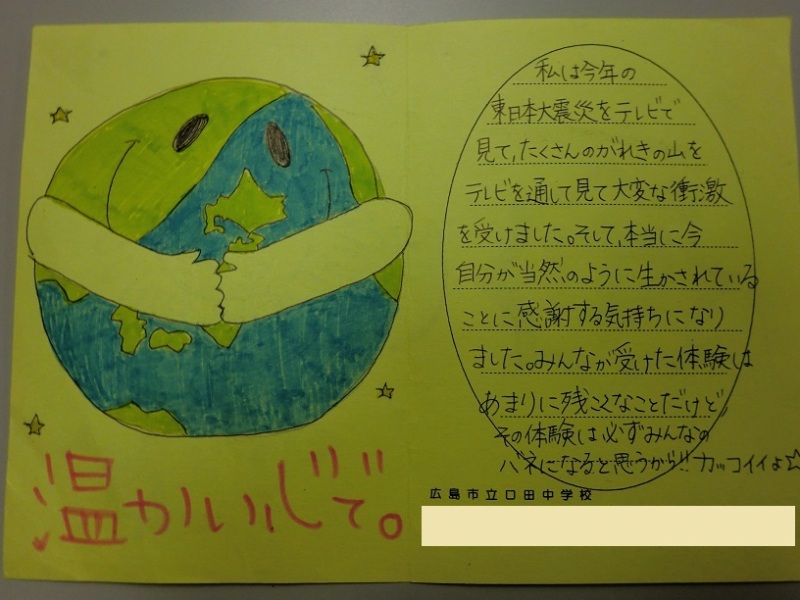 温かい心で。
私は今年の
東日本大震災をテレビで
見て、たくさんのがれきの山を
テレビを通して見て大変な衝激
を受けました。そして、本当に今
自分が当然のように生かされている
ことに感謝する気持ちになり
ました。みんなが受けた体験は
あまりに残こくなことだけど、
その体験は必ずみんなの
バネになると思うから!!カッコイイよ☆
広島市立口田中学校